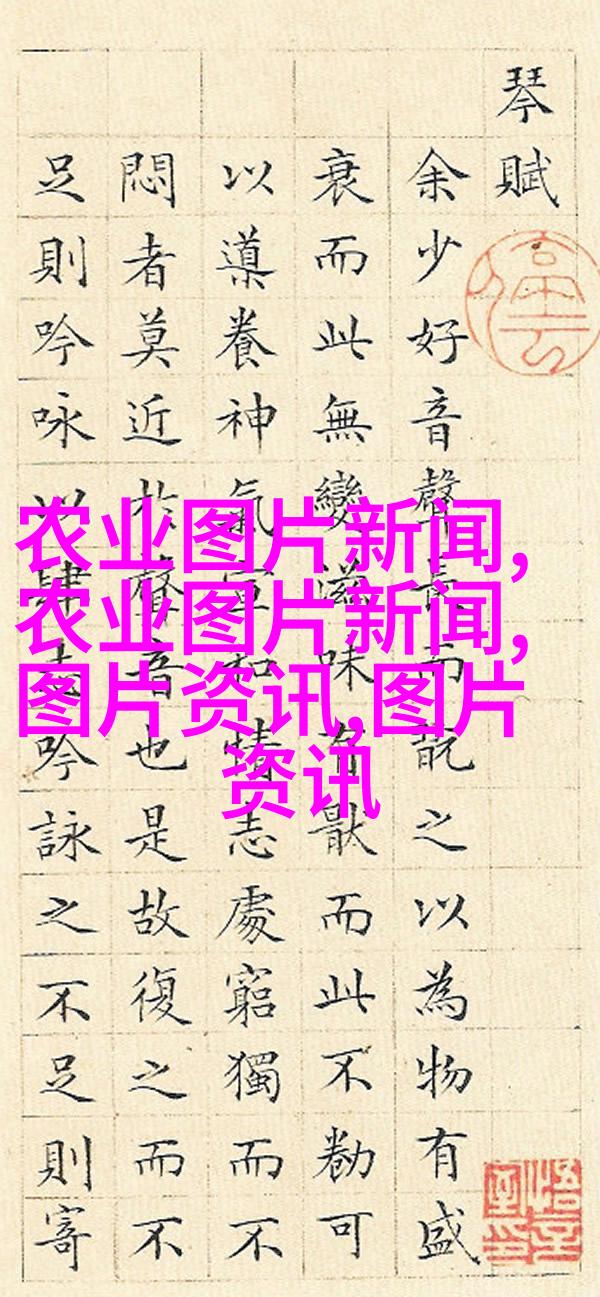 琴賦
余少好音聲長而翫之以為物有盛
衰而此無變滋味有猒而此不勌可
以導養神氣宣和情志處窮獨而不
悶者莫近於聲音也是故復之而不
足則吟咏以肆志吟詠之不足則寄
农业图片新闻,
农业图片新闻,
图片资讯,图片
资讯